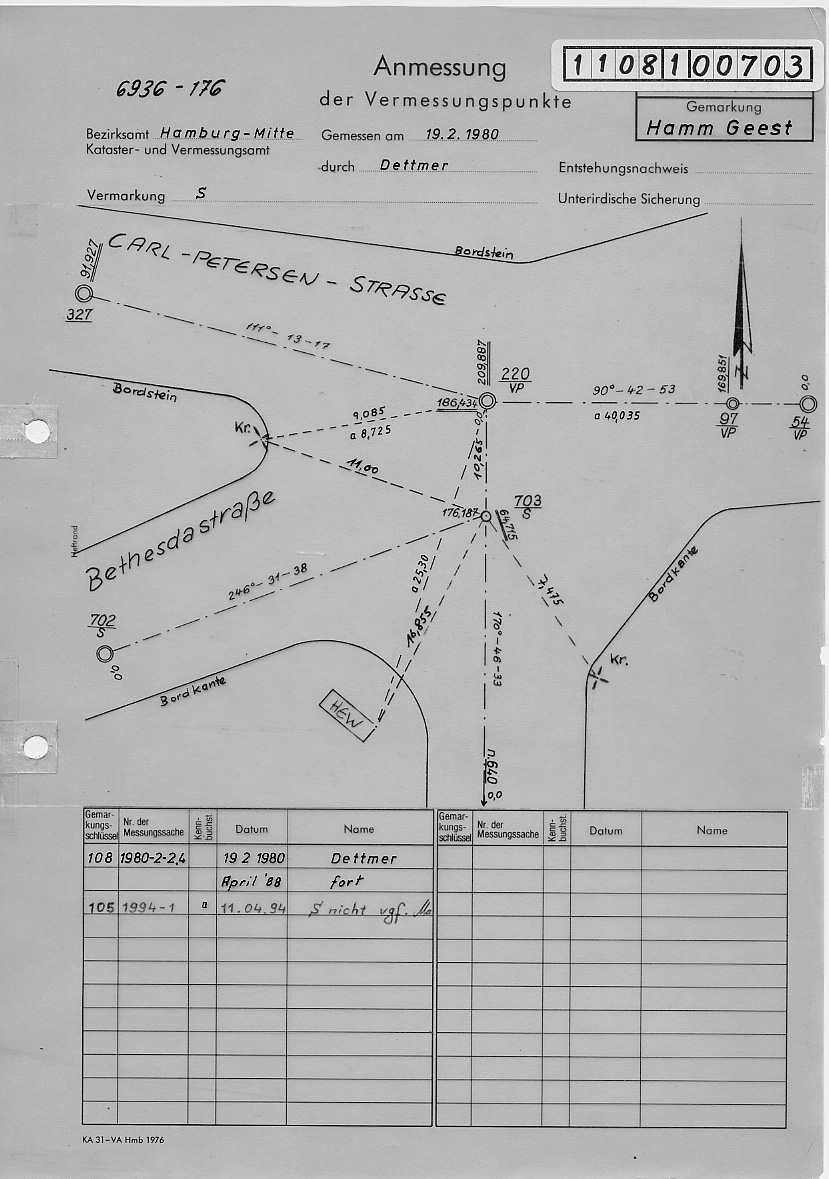 1108100703
6936 - 176
Anmessung
der Vermessungspunkte
Gemarkung
Hamm Geest
Bezirksamt Hamburg-Mitte
Kataster- und Vermessungsamt
Gemessen am 19.2.1980
durch Dettmer
Entstehungsnachweis
Vermarkung S
Unterirdische Sicherung
CARL-PETERSEN-STRASSE
Bordstein
91,927
327
111°-13-17
209,887
220
VP
186,434
90°-42-53
a 40,035
169,851
97
VP
0,0
54
VP
N
Bordstein
Kr.
9,085
a 8,725
11,00
10,265
0,0
176,187
703
S
64,715
Bethesdastraße
Heftrand
246°-31-38
702
S
0,0
a 25,30
16,855
7,475
170°-46-33
Bordkante
Kr.
Bordkante
HEW
n.640
0,0
Gemar-kungs-schlüssel Nr. der Messungssache Kenn-buchst. Datum Name Gemar-kungs-schlüssel Nr. der Messungssache Kenn-buchst. Datum Name
108 1980-2-2,4 19 2 1980 Dettmer
April '88 fort
105 1994-1 a 11.04.94 S nicht vgf.
KA 31-VA Hmb 1976